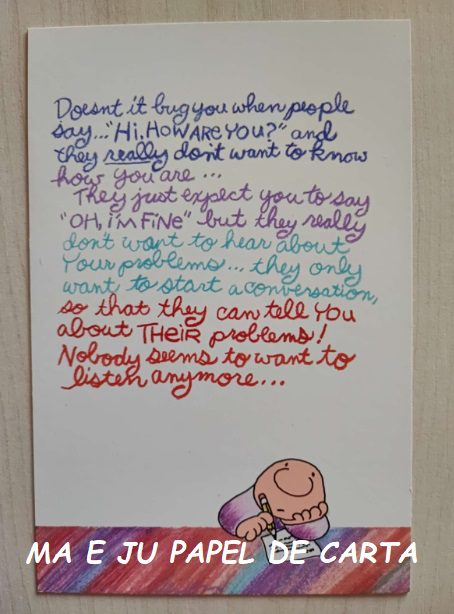 Doesn't it bug you when people
say..."Hi, HOW ARE YOU?" and
they really don't want to know
how you are ...
They just expect you to say
"OH, i'm FiNe" but they really
don't want to hear about
Your problems... they only
want to start a conversation,
so that they can tell YOU
about THEiR problems!
Nobody seems to want to
listen anymore...
MA E JU PAPEL DE CARTA